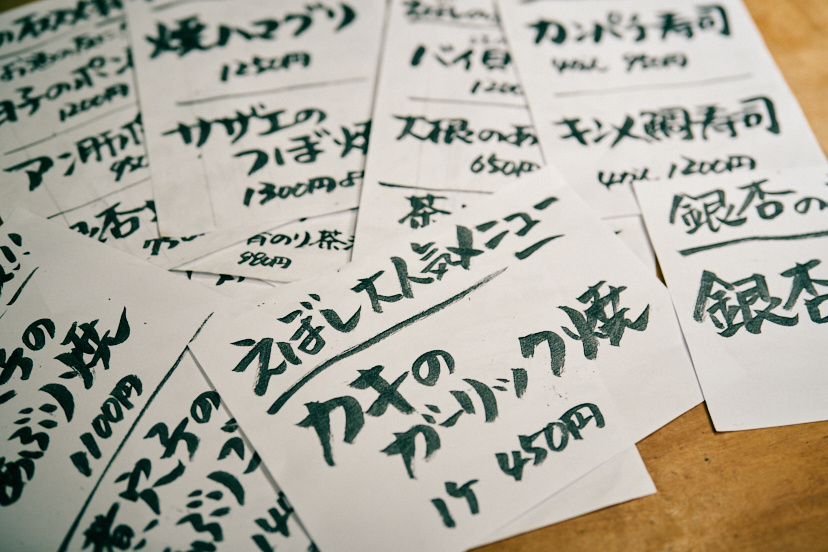 焼ハマグリ
1250円
サザエの
つぼ焼
1300円よ
バイ
大根のあ
650円
茶
カンパチ寿司
4かん 950円
キンメ鯛寿司
4かん 1200円
銀杏の
銀杏
1200円
アン肝ポ
杏
のり茶
980円
えぼし大人気メニュー
カキの
ガーリック焼
1ケ 450円
子の
あぶり焼
1100円